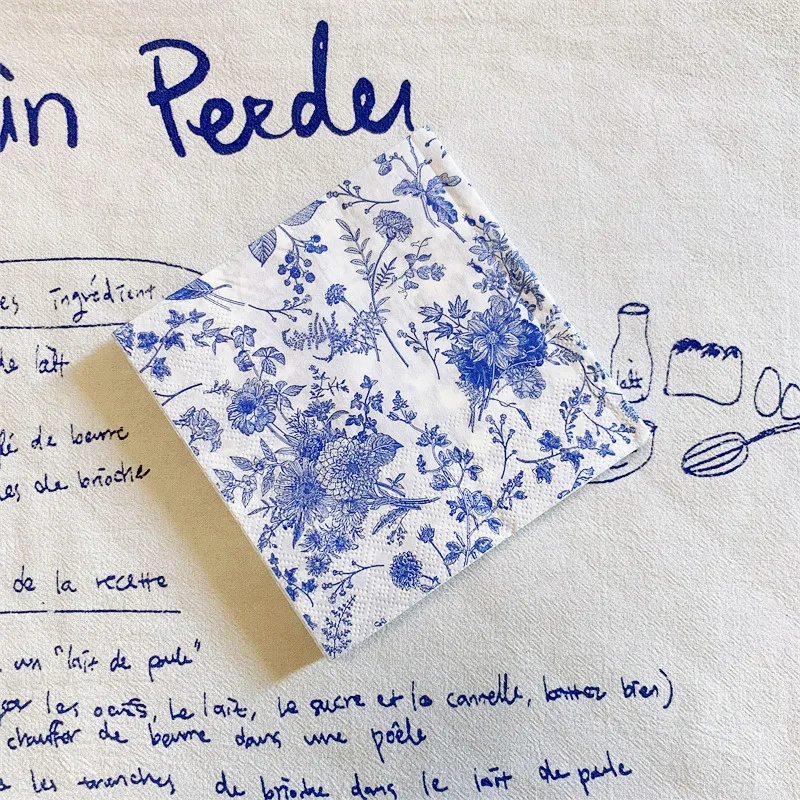 in Perdu
es ingrédient
de lait
lait
lé de beurre
es de brioche
de la recette
un "lait de poule"
ger les oeufs, le lait, le sucre et la cannelle, battez bien)
chauffer de beurre dans une poêle
les tranches de brioche dans le lait de poule